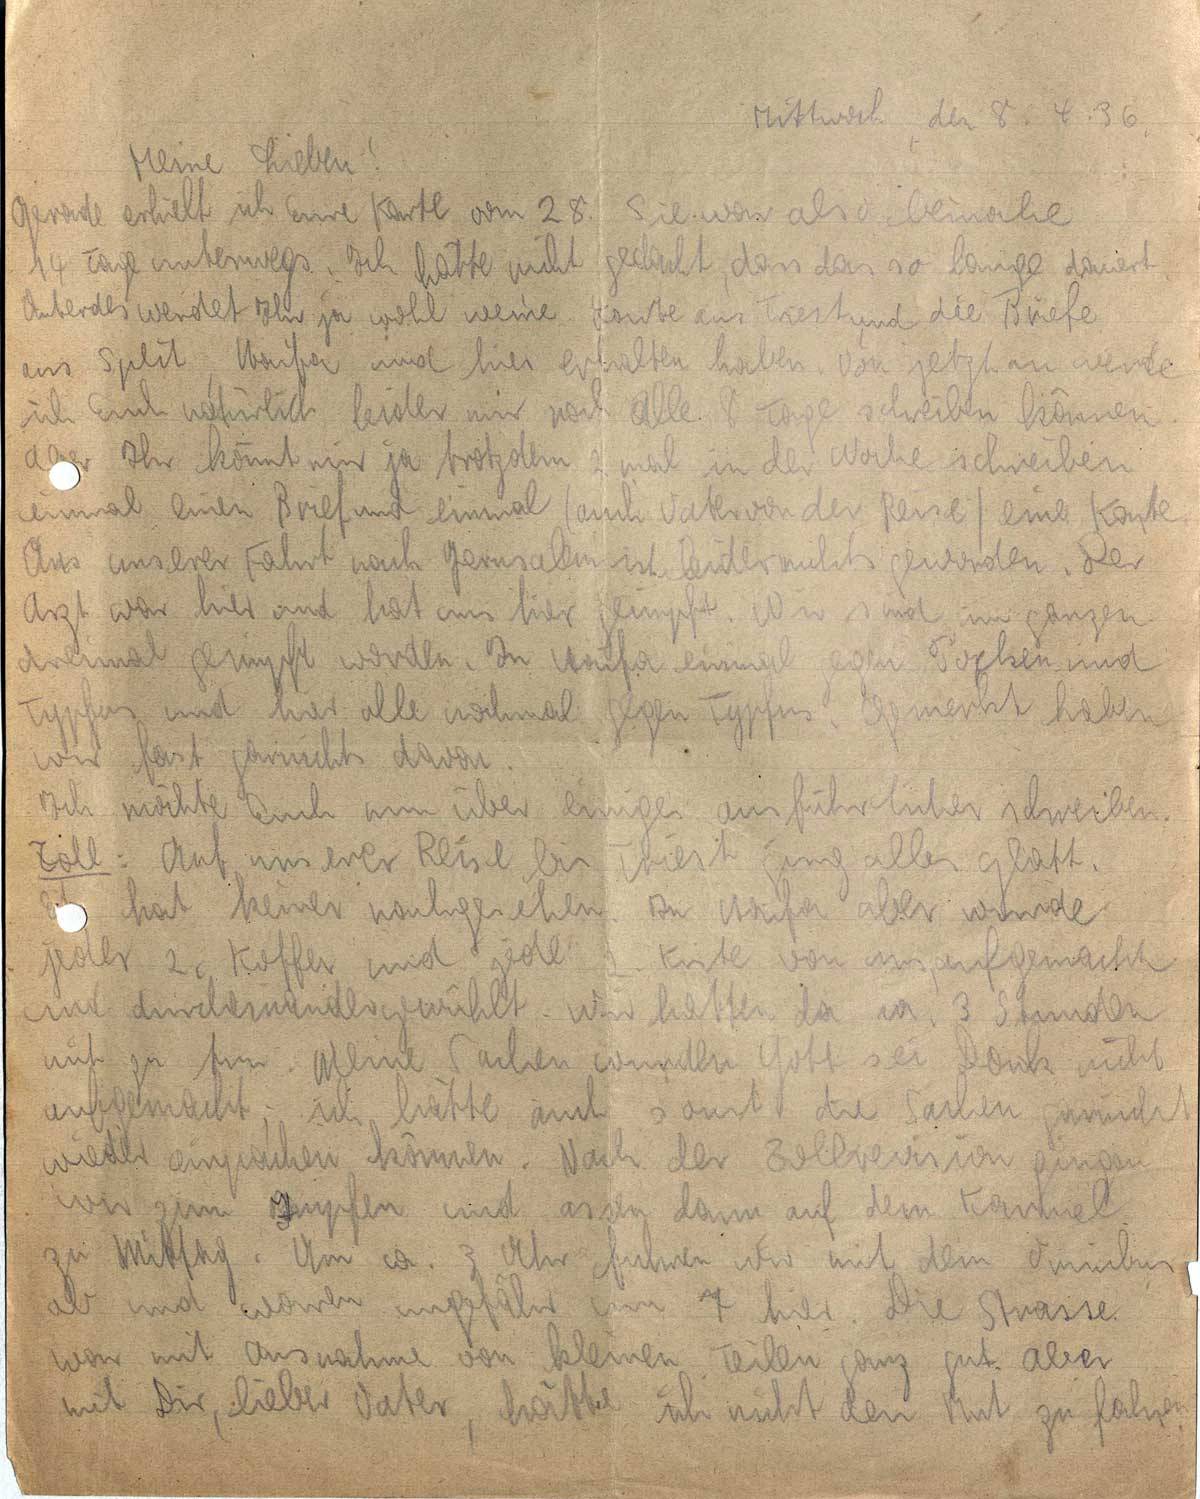 Mittwoch, den 8. 4. 36.
Meine Lieben!
Gerade erhielt ich Eure Karte vom 28. Sie war also beinahe
14 Tage unterwegs. Ich hätte nicht gedacht, dass das so lange dauert.
werdet Ihr ja wohl meine Karte aus Triest und die Briefe
aus Split, Haifa und hier erhalten haben. Von jetzt an werde
ich Euch natürlich leider nur noch alle 8 Tage schreiben können.
Aber Ihr könnt mir ja trotzdem 2 mal in der Woche schreiben
einmal einen Brief und einmal (auch Vater von der Reise) eine Karte.
Aus unserer Fahrt nach Jerusalem ist leider nichts geworden. Der
Arzt war hier und hat uns hier geimpft. Wir sind im ganzen
dreimal geimpft worden. In Haifa einmal gegen Pocken und
Typfus und hier alle nochmal gegen Typfus. Gemerkt haben
wir fast garnichts davon.
Ich möchte Euch nun über einiges ausführlicher schreiben.
Zoll: Auf unserer Reise bis Triest ging alles glatt.
Es hat keiner nachgesehen. In Haifa aber wurde
jeder 2. Koffer und jede 2. Kiste von uns aufgemacht
und durcheinandergewühlt. Wir hatten da ca. 3 Stunden
mit zu tun. Meine Sachen wurden Gott sei Dank nicht
aufgemacht; ich hätte auch sonst die Sachen garnicht
wieder einpacken können. Nach der Zollrevision gingen
wir zum Impfen und assen dann auf dem Karmel
zu Mittag. Um ca. 3 Uhr fuhren wir mit dem Omnibus
ab und waren ungefähr um 7 hier. Die Strasse
war mit Ausnahme von kleinen Teilen ganz gut. Aber
mit Dir, lieber Vater, hätte ich nicht den Mut zu fahren